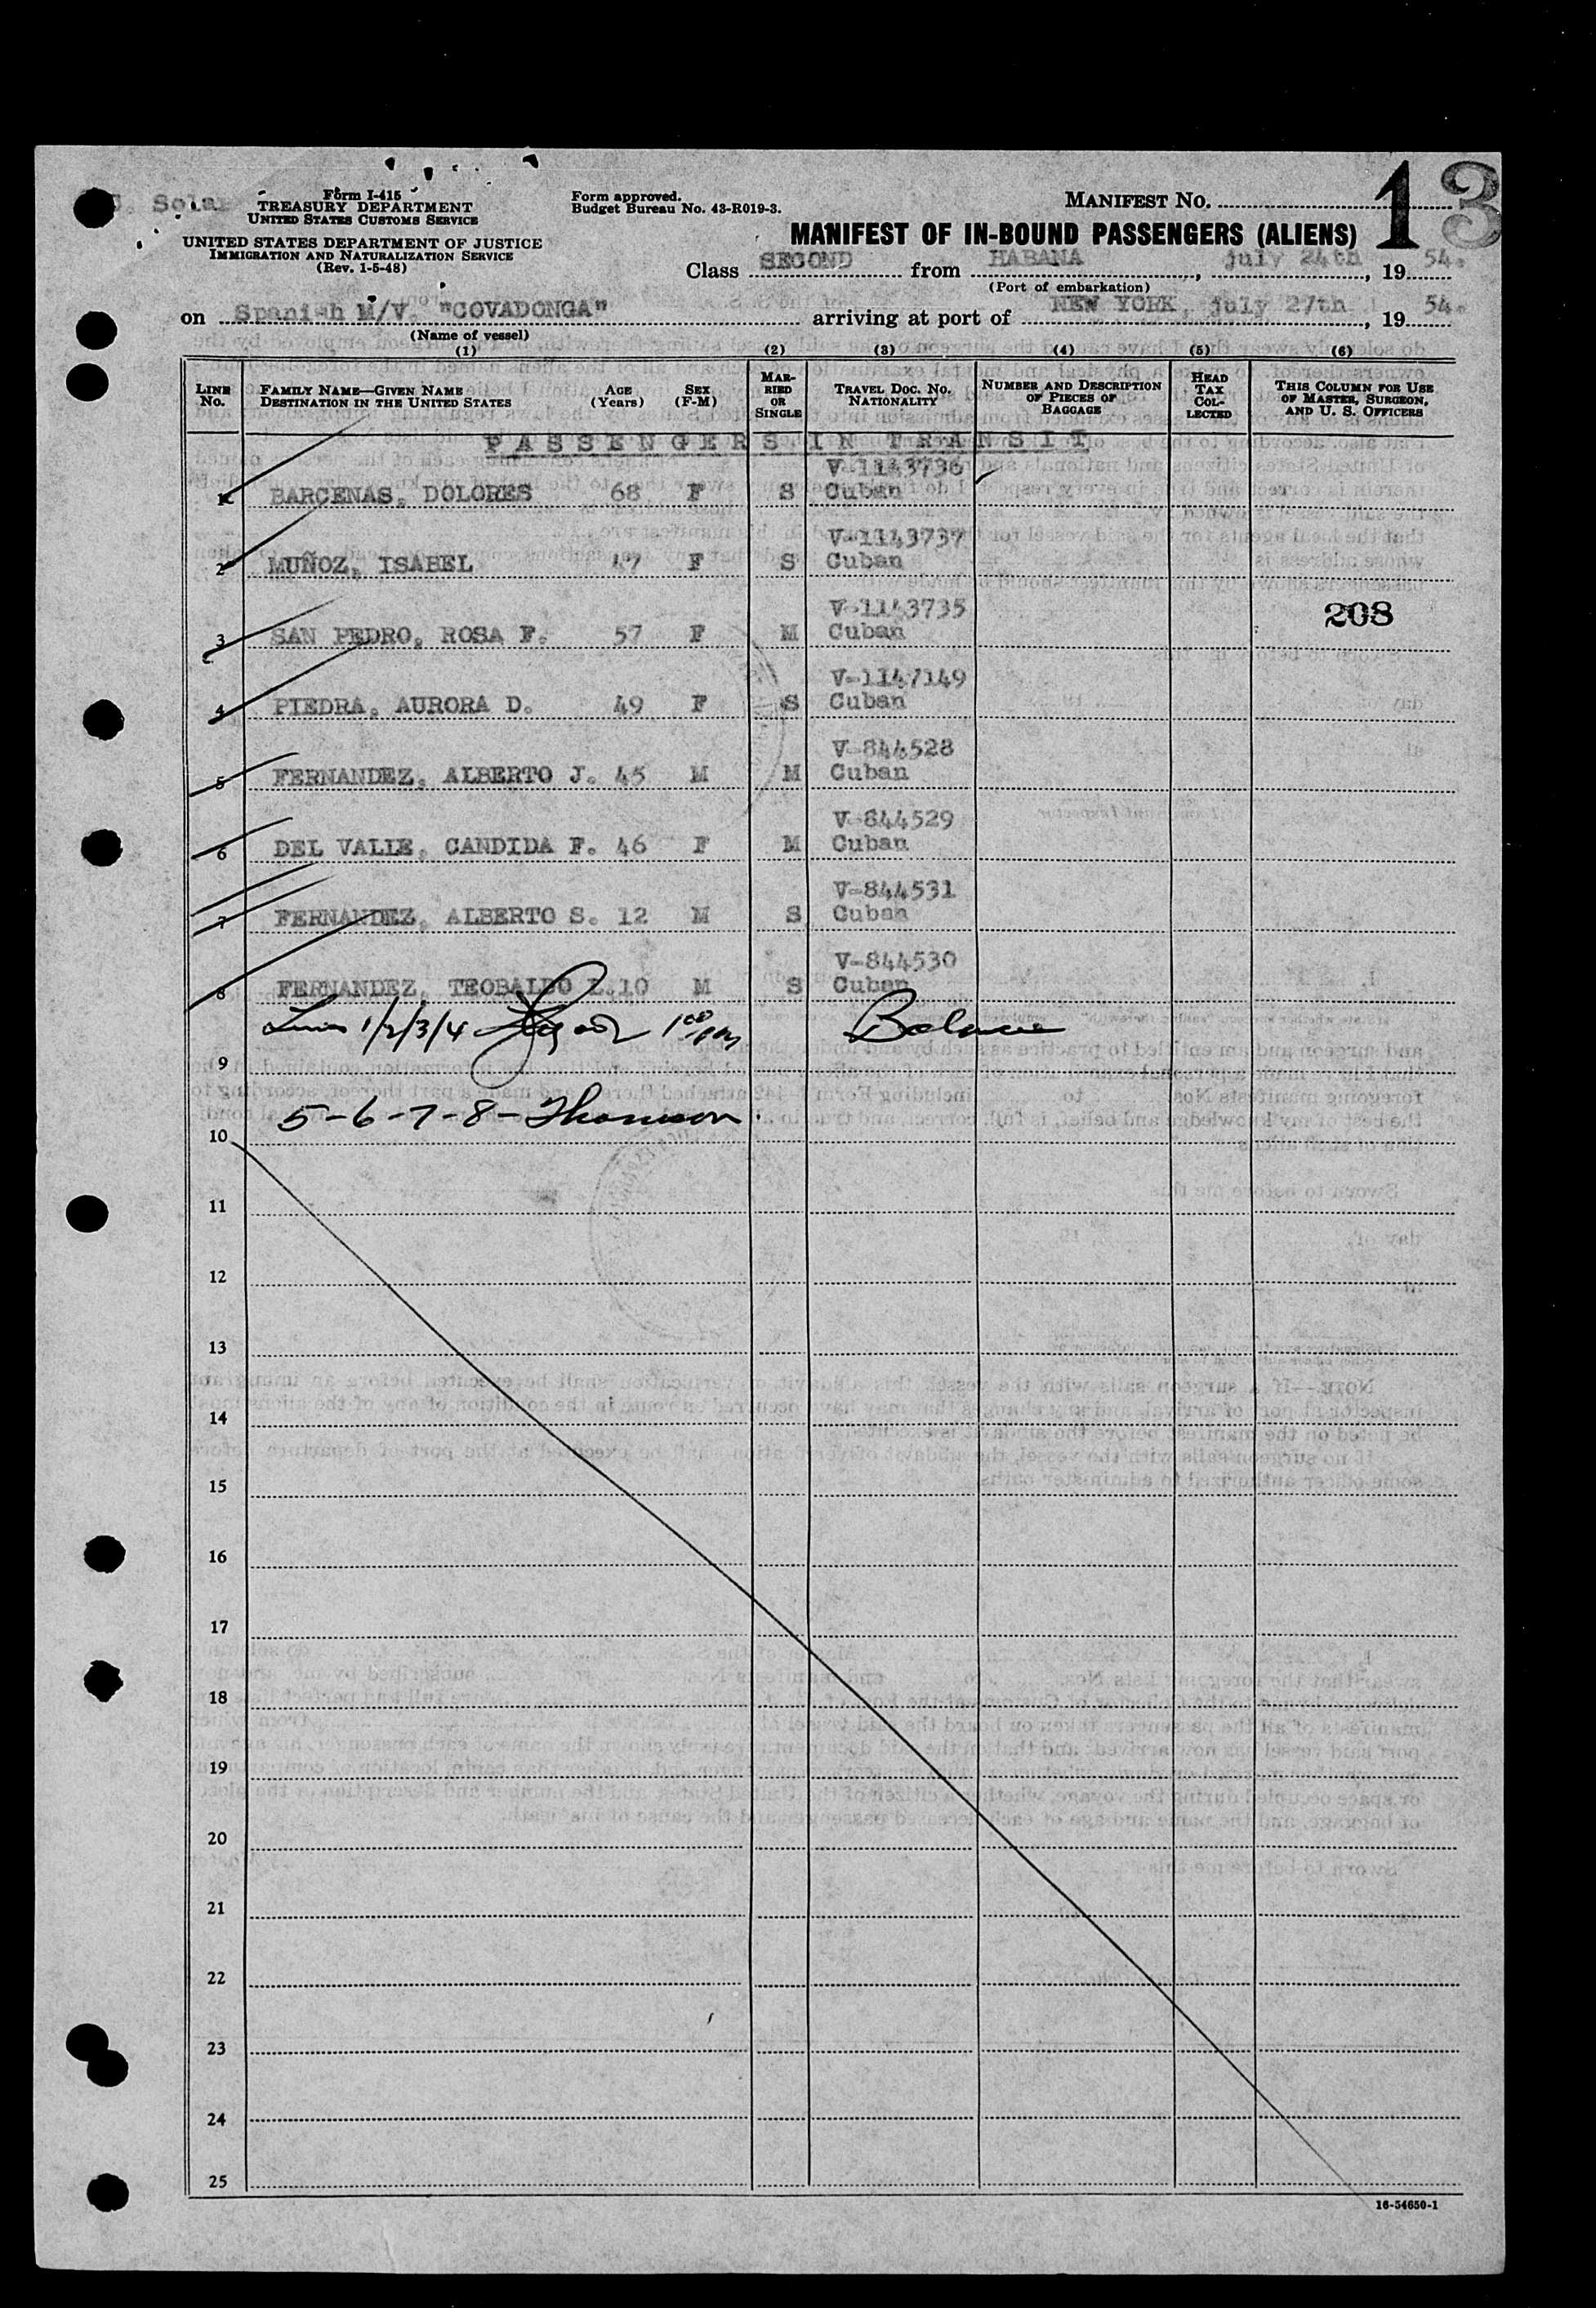 Form I-415
TREASURY DEPARTMENT
UNITED STATES CUSTOMS SERVICE
UNITED STATES DEPARTMENT OF JUSTICE
IMMIGRATION AND NATURALIZATION SERVICE
(Rev. 1-5-48)
Form approved.
Budget Bureau No. 43-R019-3.
MANIFEST NO. 13
MANIFEST OF IN-BOUND PASSENGERS (ALIENS)
Class SECOND from HABANA, july 24th, 1954.
(Port of embarkation)
on Spanish M/V. "COVADONGA" arriving at port of NEW YORK, july 27th, 1954.
(Name of vessel)
(1) (2) (3) (4) (5) (6)
LINE NO. FAMILY NAME—GIVEN NAME DESTINATION IN THE UNITED STATES AGE (Years) SEX (F-M) MARRIED OR SINGLE TRAVEL DOC. NO. NATIONALITY NUMBER AND DESCRIPTION OF PIECES OF BAGGAGE HEAD TAX COLLECTED THIS COLUMN FOR USE OF MASTER, SURGEON, AND U. S. OFFICERS
PASSENGERS IN TRANSIT
V-1143736
1 BARCENAS, DOLORES 68 F S Cuban
V-1143737
2 MUÑOZ, ISABEL 47 F S Cuban
V-1143735
208
3 SAN PEDRO, ROSA F. 57 F M Cuban
V-1147149
4 PIEDRA, AURORA D. 49 F S Cuban
V-844528
5 FERNANDEZ, ALBERTO J. 45 M M Cuban
V-844529
6 DEL VALLE, CANDIDA F. 46 F M Cuban
V-844531
7 FERNANDEZ, ALBERTO S. 12 M S Cuban
V-844530
8 FERNANDEZ, TEOBALDO L. 10 M S Cuban
Lines 1/2/3/4
9
5-6-7-8-
10
11
12
13
14
15
16
17
18
19
20
21
22
23
24
25
16-54650-1